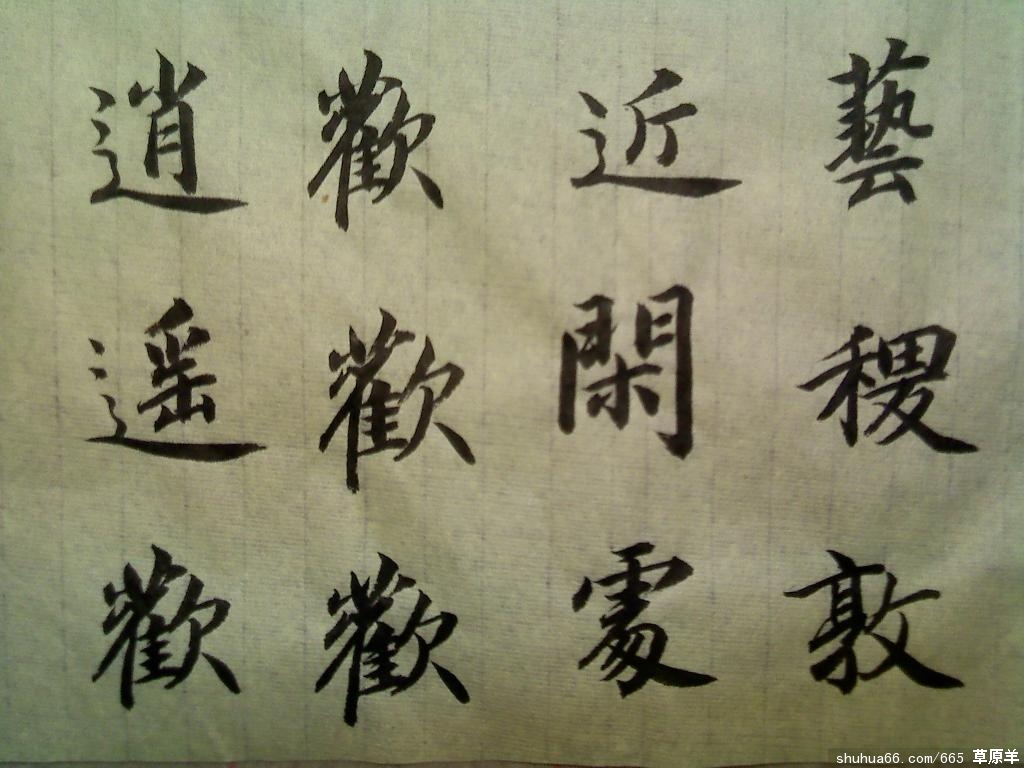 藝稷敦
近閑處
歡歡歡
逍遥歡
shuhua66.com/665 草原羊